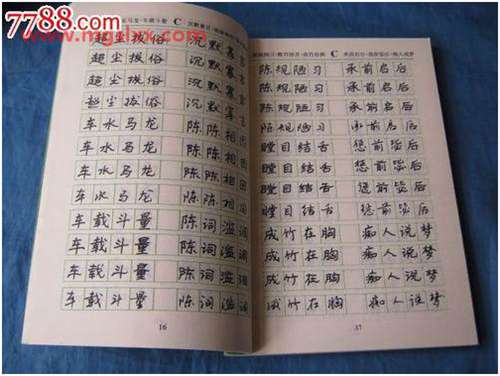 7788.com
www.mglhx.com
马龙·车载斗量 C 沉默寡言·陈陈相因
超尘拔俗 沉默寡言
超尘拔俗 沉默寡言
超尘拔俗 沉默寡言
超尘拔俗 沉默寡言
车水马龙 陈陈相因
车水马龙 陈陈相因
车水马龙 陈陈相因
车水马龙 陈陈相因
车载斗量 陈词滥
车载斗量 陈词滥
车载斗量 陈词滥
车载斗量 陈词滥
16
陈规陋习·瞠目结舌·成竹在胸 C 承前启后·惩前毖后·痴人说梦
陈规陋习 承前启后
陈规陋习 承前启后
陈规陋习 承前启后
陈规陋习 承前启后
瞠目结舌 惩前毖后
瞠目结舌 惩前毖后
瞠目结舌 惩前毖后
瞠目结舌 惩前毖后
成竹在胸 痴人说梦
成竹在胸 痴人说梦
成竹在胸 痴人说梦
成竹在胸 痴人说梦